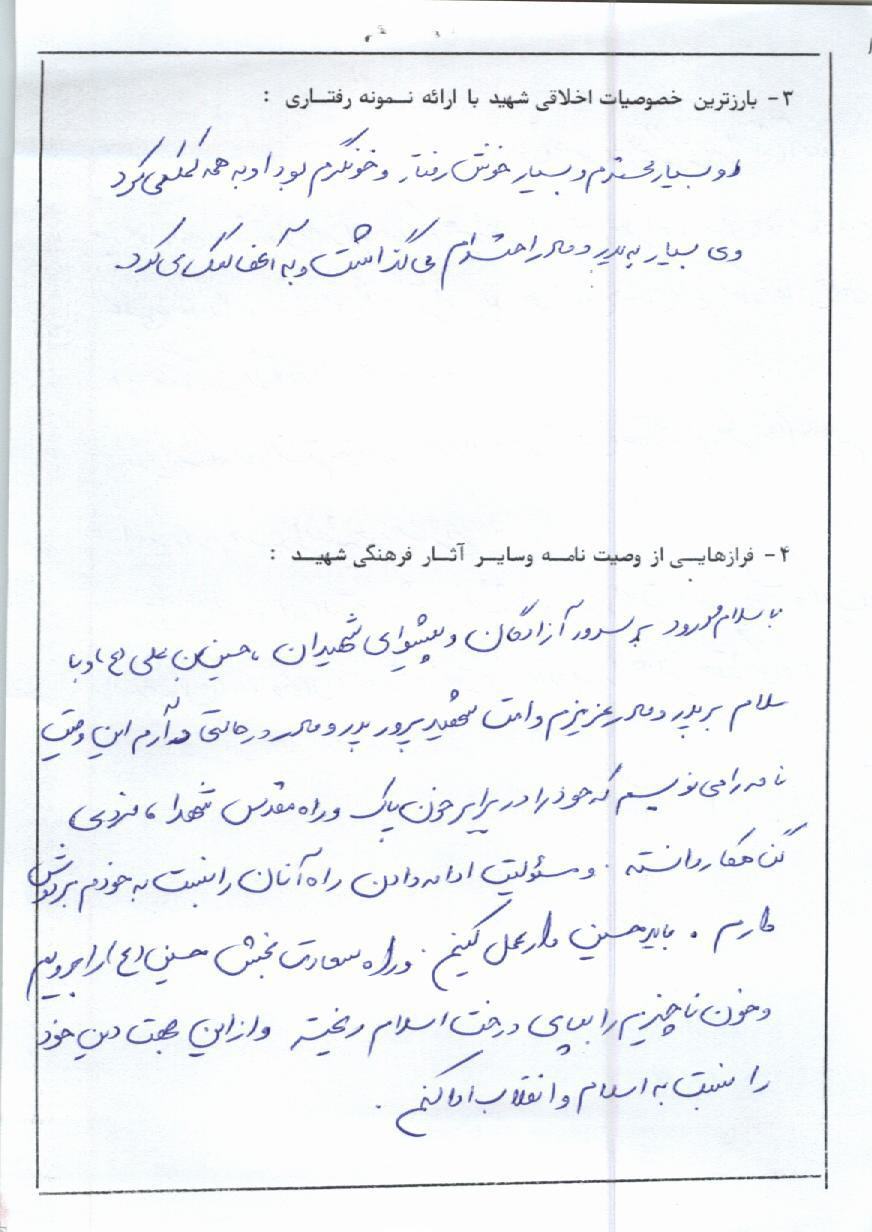 ۳- بارزترین خصوصیات اخلاقی شهید با ارائه نمونه رفتاری :
او بسیار محترم و بسیار خوش رفتار و خونگرم بود او به همه کمک می کرد
وی بسیار به پدر و مادر احترام می گذاشت و به آنها کمک می کرد.
۴- فرازهایی از وصیت نامه وسایر آثار فرهنگی شهید :
با سلام و درود بر سرور آزادگان و پیشوای شهیدان ، حسین بن علی (ع) و با
سلام بر پدر و مادر عزیزم و امت شهید پرور پدر و مادر در حالتی دارم این وصیت
نامه را می نویسم که خود را در برابر خون پاک و راه مقدس شهدا ، فردی
گناهکار دانسته . و مسئولیت ادامه دادن راه آنان را نسبت به خودم بر دوش
دارم . باید حسین وار عمل کنیم . و راه سعادت بخش حسین (ع) را برویم
و خون ناچیزم را بپای درخت اسلام ریخته و از این جهت دین خود
را نسبت به اسلام و انقلاب ادا کنم .